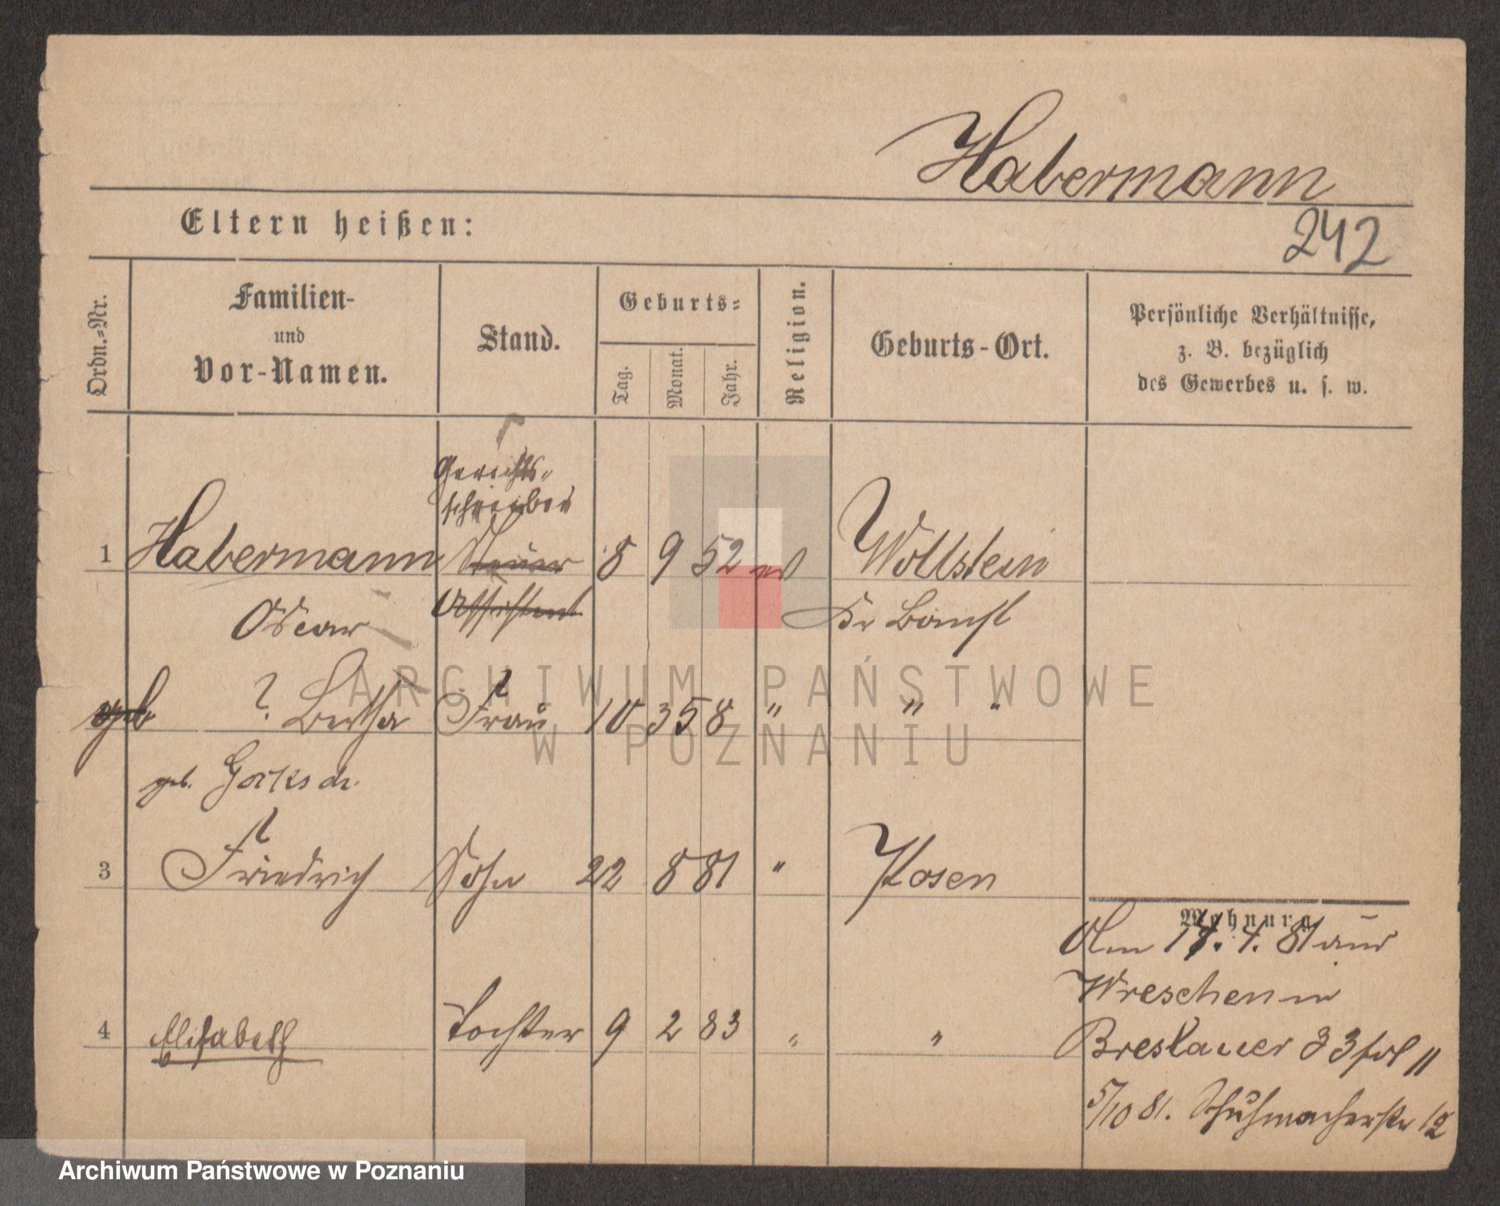 Habermann
242
Eltern heißen:
Ordn.-Nr.
Familien-
und
Vor-Namen.
Stand.
Geburts-
Tag.
Monat.
Jahr.
Religion.
Geburts-Ort.
Persönliche Verhältnisse,
z. B. bezüglich
des Gewerbes u. s. w.
Gerichts-
schreiber
1 Habermann Steuer 8 9 52 ev Wollstein
Oscar Assistent Kr Bomst
geb ? Bertha Frau 10 3 58 " " "
geb.
3 Friedrich Sohn 22 8 81 " Posen
Wohnung
Am 17. 4. 81 aus
Wreschen in
4 Elisabeth Tochter 9 2 83 " "
Breslauer 33
5/10 81. Schuhmacherstr 12
ARCHIWUM PAŃSTWOWE
W POZNANIU
Archiwum Państwowe w Poznaniu